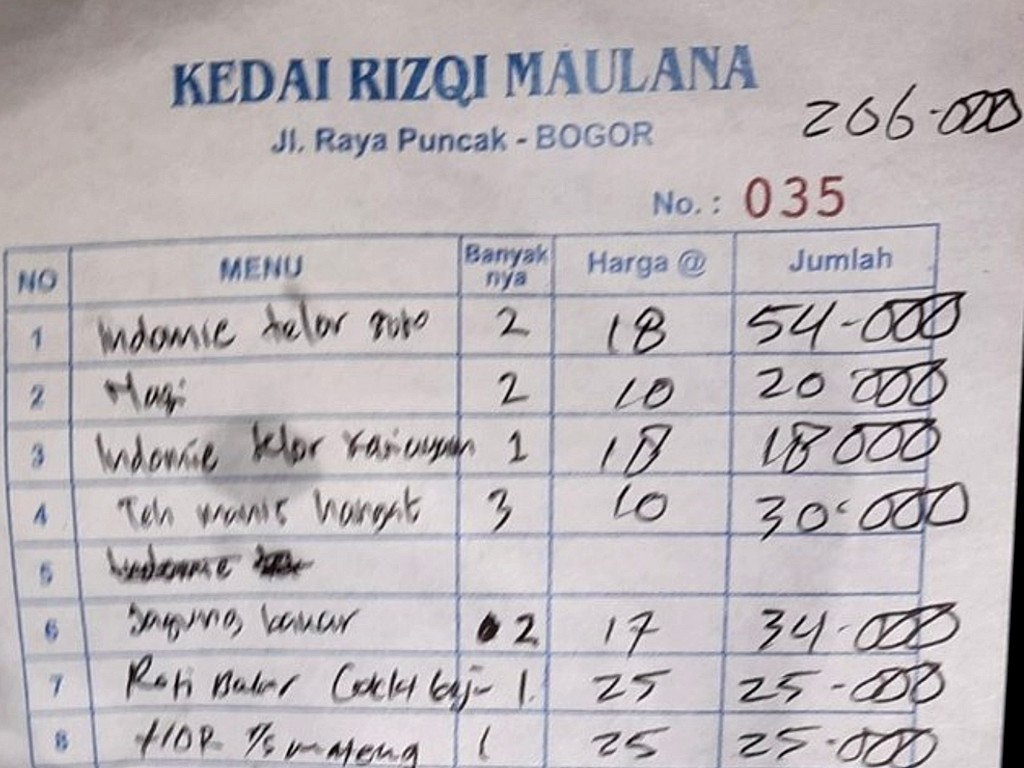 KEDAI RIZQI MAULANA
206-000
Jl. Raya Puncak - BOGOR
No. : 035
NO MENU Banyak nya Harga @ Jumlah
1 Indomie telor soto 2 18 54-000
2 Nasi 2 10 20 000
3 Indomie telor 1 18 18 000
4 Teh manis hangat 3 10 30-000
5 Indomie
6 Jagung bakar 2 17 34-000
7 Roti Bakar Coklat keju 1 25 25-000
8 1 25 25-000